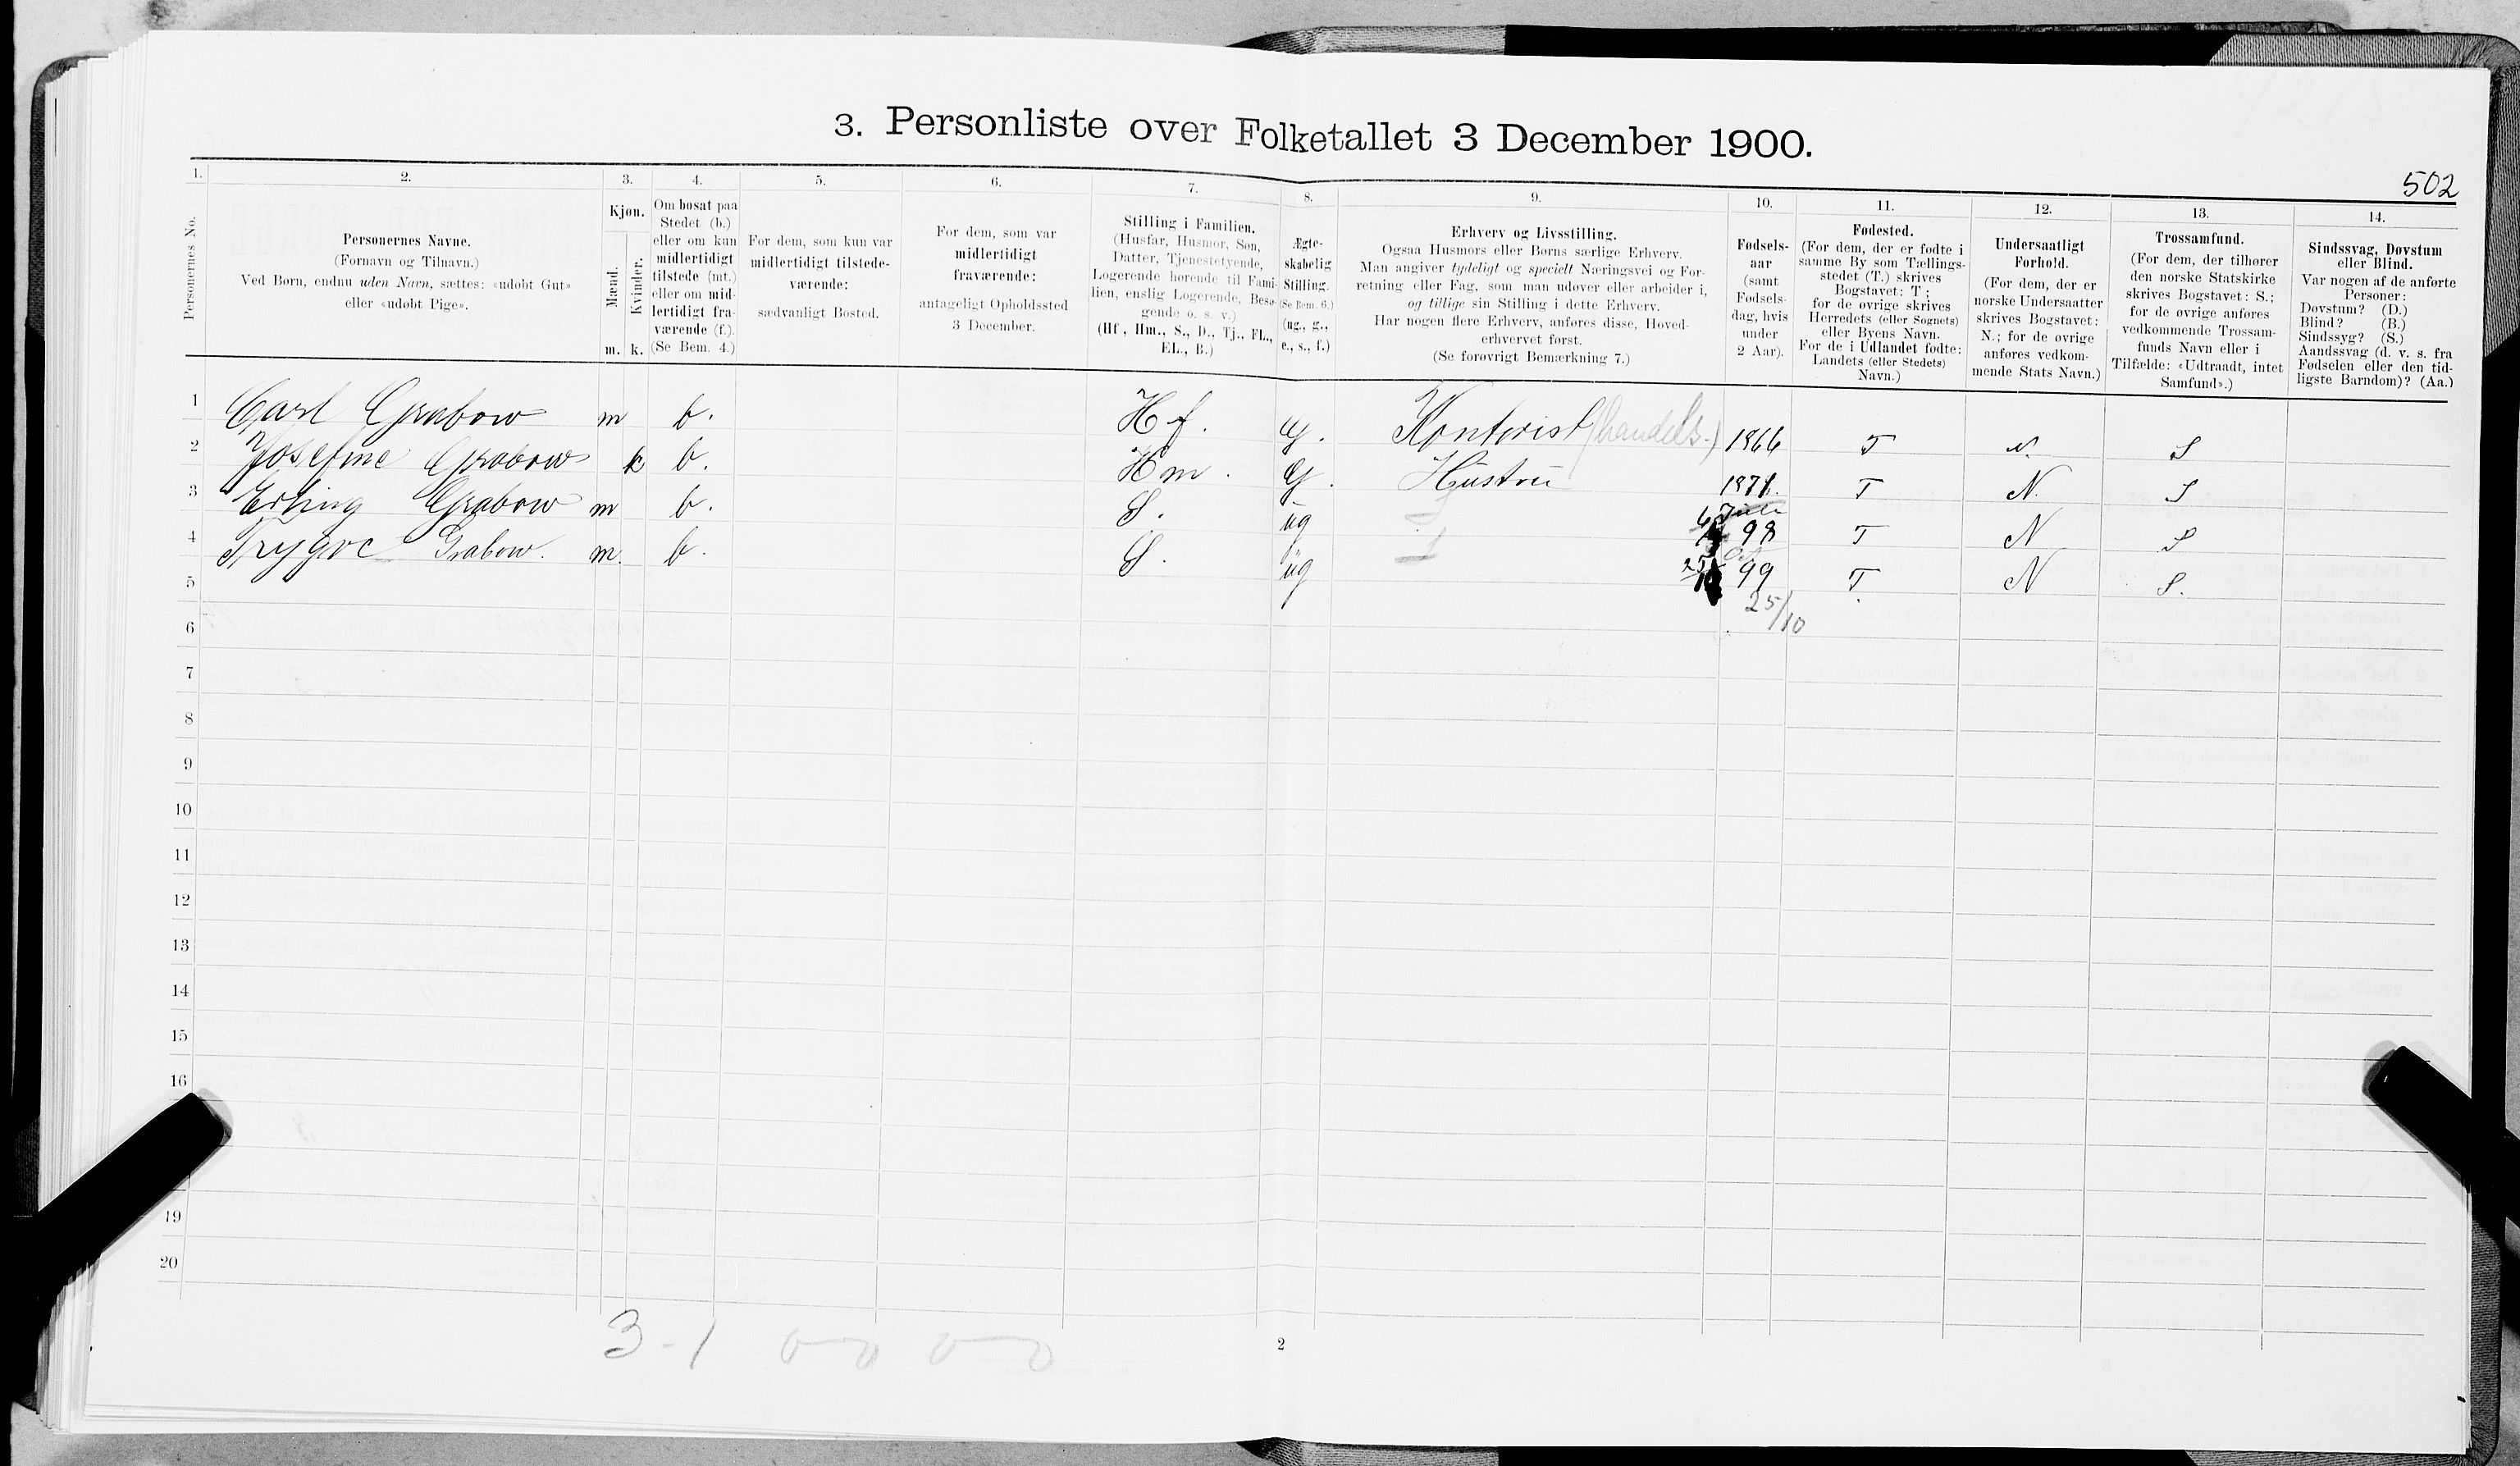 3. Personliste over Folketallet 3 December 1900.
502
1. 2. 3. 4. 5. 6. 7. 8. 9. 10. 11. 12. 13. 14.
Personernes No.
Personernes Navne.
(Fornavn og Tilnavn.)
Ved Børn, endnu uden Navn, sættes: «udøbt Gut»
eller «udøbt Pige».
Kjøn.
Mænd.
Kvinder.
m. k.
Om bosat paa
Stedet (b.)
eller om kun
midlertidigt
tilstede (mt.)
eller om mid-
lertidigt fra-
værende (f.).
(Se Bem. 4.)
For dem, som kun var
midlertidigt tilstede-
værende:
sædvanligt Bosted.
For dem, som var
midlertidigt
fraværende:
antageligt Opholdssted
3 December.
Stilling i Familien.
(Husfar, Husmor, Søn,
Datter, Tjenestetyende,
Logerende hørende til Fami-
lien, enslig Logerende, Besø-
gende o. s. v.)
(Hf., Hm., S., D., Tj., FL.,
EL., B.)
Ægte-
skabelig
Stilling.
(Se Bem. 6.)
(ug., g.,
e., s., f.)
Erhverv og Livsstilling.
Ogsaa Husmors eller Børns særlige Erhverv.
Man angiver tydeligt og specielt Næringsvei og For-
retning eller Fag, som man udøver eller arbeider i,
og tillige sin Stilling i dette Erhverv.
Har nogen flere Erhverv, anføres disse, Hoved-
erhvervet først.
(Se forøvrigt Bemærkning 7.)
Fødsels-
aar
(samt
Fødsels-
dag, hvis
under
2 Aar).
Fødested.
(For dem, der er fødte i
samme By som Tællings-
stedet (T.) skrives
Bogstavet: T;
for de øvrige skrives
Herredets (eller Sognets)
eller Byens Navn.
For de i Udlandet fødte:
Landets (eller Stedets)
Navn.)
Undersaatligt
Forhold.
(For dem, der er
norske Undersaatter
skrives Bogstavet:
N.; for de øvrige
anføres vedkom-
mende Stats Navn.)
Trossamfund.
(For dem, der tilhører
den norske Statskirke
skrives Bogstavet: S.;
for de øvrige anføres
vedkommende Trossam-
funds Navn eller i
Tilfælde: «Udtraadt, intet
Samfund».)
Sindssvag, Døvstum
eller Blind.
Var nogen af de anførte
Personer:
Døvstum? (D.)
Blind? (B.)
Sindssyg? (S.)
Aandssvag (d. v. s. fra
Fødselen eller den tid-
ligste Barndom)? (Aa.)
1 Carl Grabow m b. Hf. G. Kontorist (handels.) 1866 T N. S
2 Josefine Grabow k b. Hm. G. Hustru 1871. T N. S
3 Erling Grabow m b. S. ug 98 T N S
4 Trygve Grabow. m. b. S. ug 99 T. N S.
5
25/10
6
7
8
9
10
11
12
13
14
15
16
19
20
3-1 0-0 0-0
2